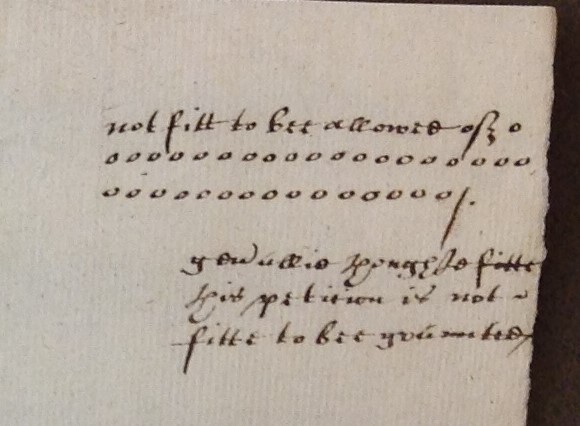 not fitt to bee allowed of o
o o o o o o o o o o o o o o o o o o o o
o o o o o o o o o o o o o o o o o
genallie thought fitte
this petition is not
fitte to bee graunted